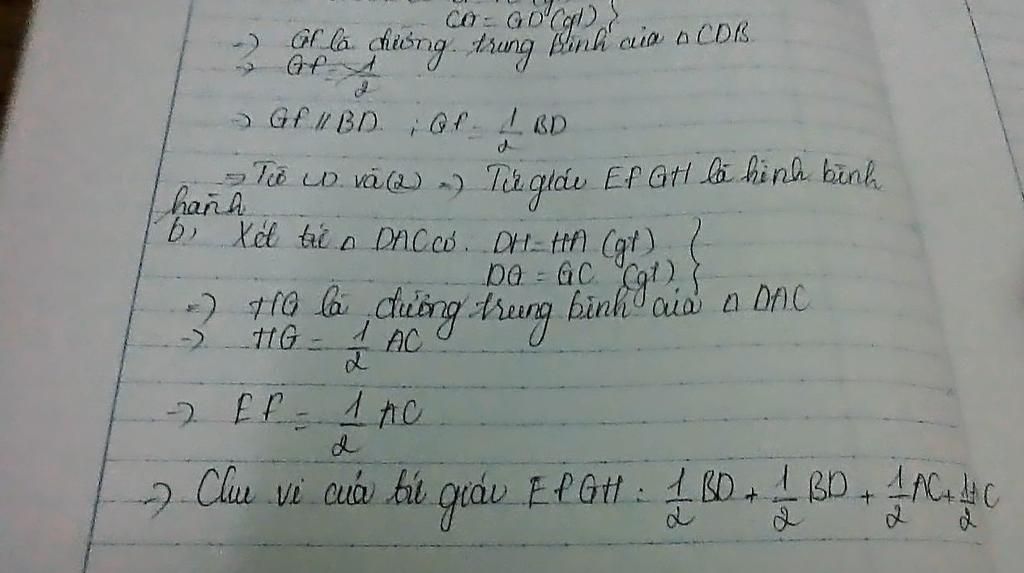 CG = GD (gt) }
=> GF là đường trung bình của △ CDB
=> GF = 1/2
=> GF // BD ; GF = 1/2 BD
=> Từ (1) và (2) => Tứ giác EFGH là hình bình
hành
b) Xét tứ △ DAC có. DH = HA (gt) }
DG = GC (gt) }
=> HG là đường trung bình của △ DAC
=> HG = 1/2 AC
=> EF = 1/2 AC
=> Chu vi của tứ giác EFGH : 1/2 BD + 1/2 BD + 1/2 AC + 1/2 AC